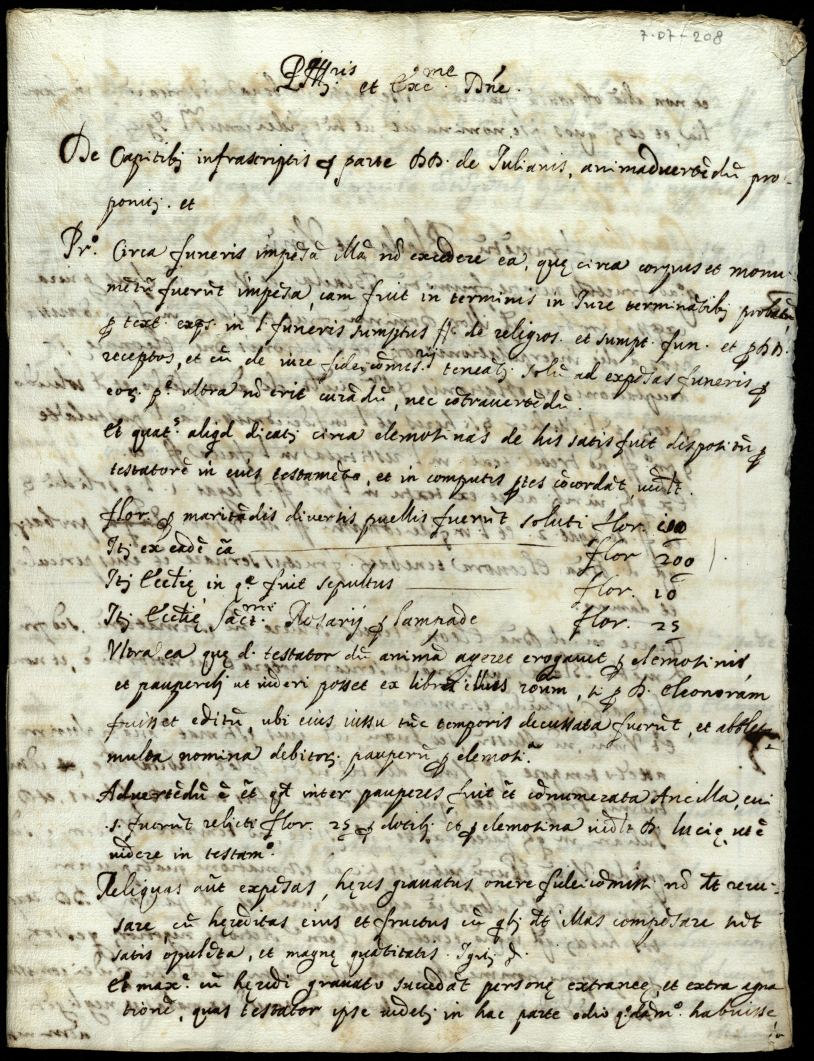 7.07-208
Ill.ris et Exc.me Dñe.
De Capitibꝫ infrascriptis ꝑ parte DD. de Iulianis, animaduertẽdũ pro-
ponitꝫ. et
Pr.o Circa funeris impẽsã illã nõ excedere ea, quę circa corpus et monu-
mẽtũ fuerũt impẽsa, iam fuit in terminis in Iure terminãtibꝫ probatũ
ꝑ text. exps. in l. funeris sumptus ff. de religios. et sumpt. fun. et ꝑ DD.
receptos, et cũ de iure fideicõmis.rij teneatꝫ solũ ad expẽsas funeris ꝑ
eos. ultra nõ erit curãdũ, nec cõtrauertẽdũ.
Et quat.s aliqd dicatꝫ circa elemosinas de his satis fuit dispositũ ꝑ
testatorẽ in eius testamẽto, et in computis ptes cõcordãt, uidlt.
flor. ꝑ maritãdis diuersis puellis fuerũt soluti flor. 100
Itꝫ ex eadẽ cã flor 200
Itꝫ Ecctię, in qa fuit sepultus flor. 10
Itꝫ Ecctię Sãct.me Rosarij ꝑ lampade flor. 25
Ultra ea quę d. testator dũ animã ageret erogauit ꝑ elemosinis
et pauperibꝫ ut uideri posset ex libro illius ronum, si ꝑ D. Eleonoram
fuisset editũ, ubi eius iussu tũc temporis decussata fuerũt, et abolet.
multa nomina debitorꝫ pauperũ ꝑ elemosi.a
Aduertẽdũ ẽ ẽt qd inter pauperes fuit ẽt cõnumerata Ancilla, cui
s. fuerũt relicti flor. 25 ꝑ dotibꝫ ẽt ꝑ elemosina uidlt D. Lucię, ut ẽ
uidere in testam.o
Reliquas aũt expẽsas, hęres grauatus onere fideicõmissi nõ dt recu-
sare, cũ hęreditas eius et fructus cũ qbꝫ dt illas compẽsare sint
satis opulẽta, et magnę quãtitatis. Igitꝫ
Et max.e cũ hęredi grauato succedãt personę extraneę, et extra agna
tionẽ, quas testator ipse uidetꝫ in hac parte odio qdãm.o habuisse